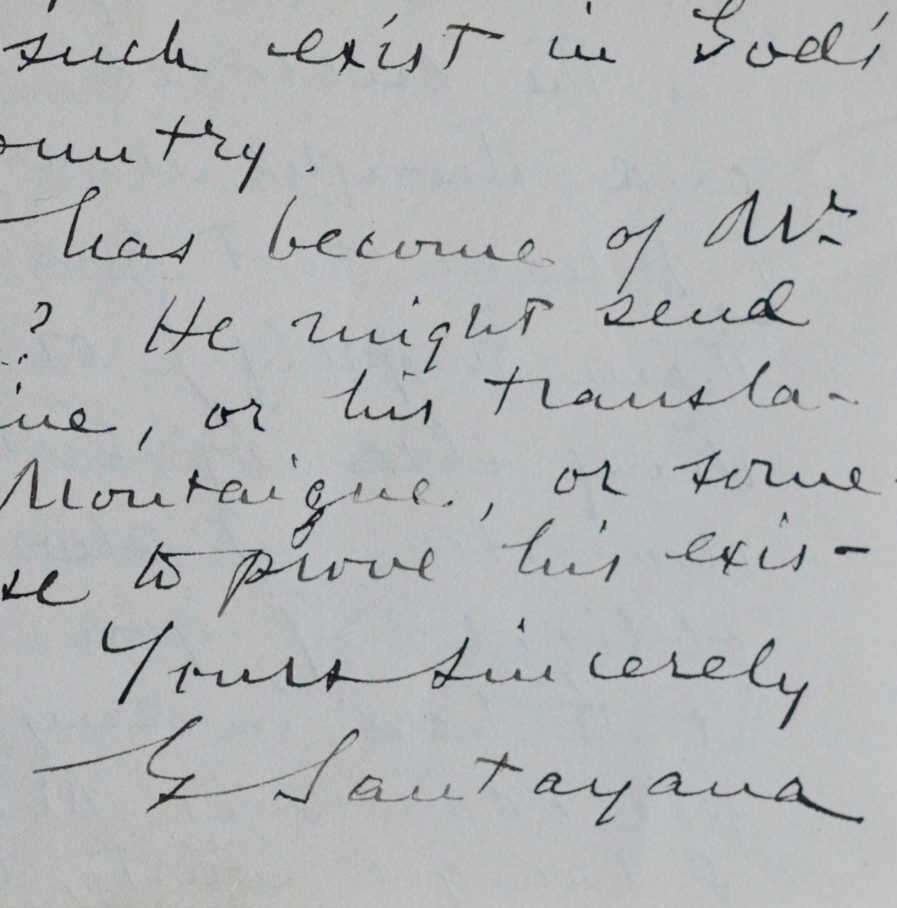 such exist in God's
ountry.
has become of Mr.
? He might send
ine, or his transla-
Montaigne, or some
se to prove his exis-
Yours sincerely
G Santayana